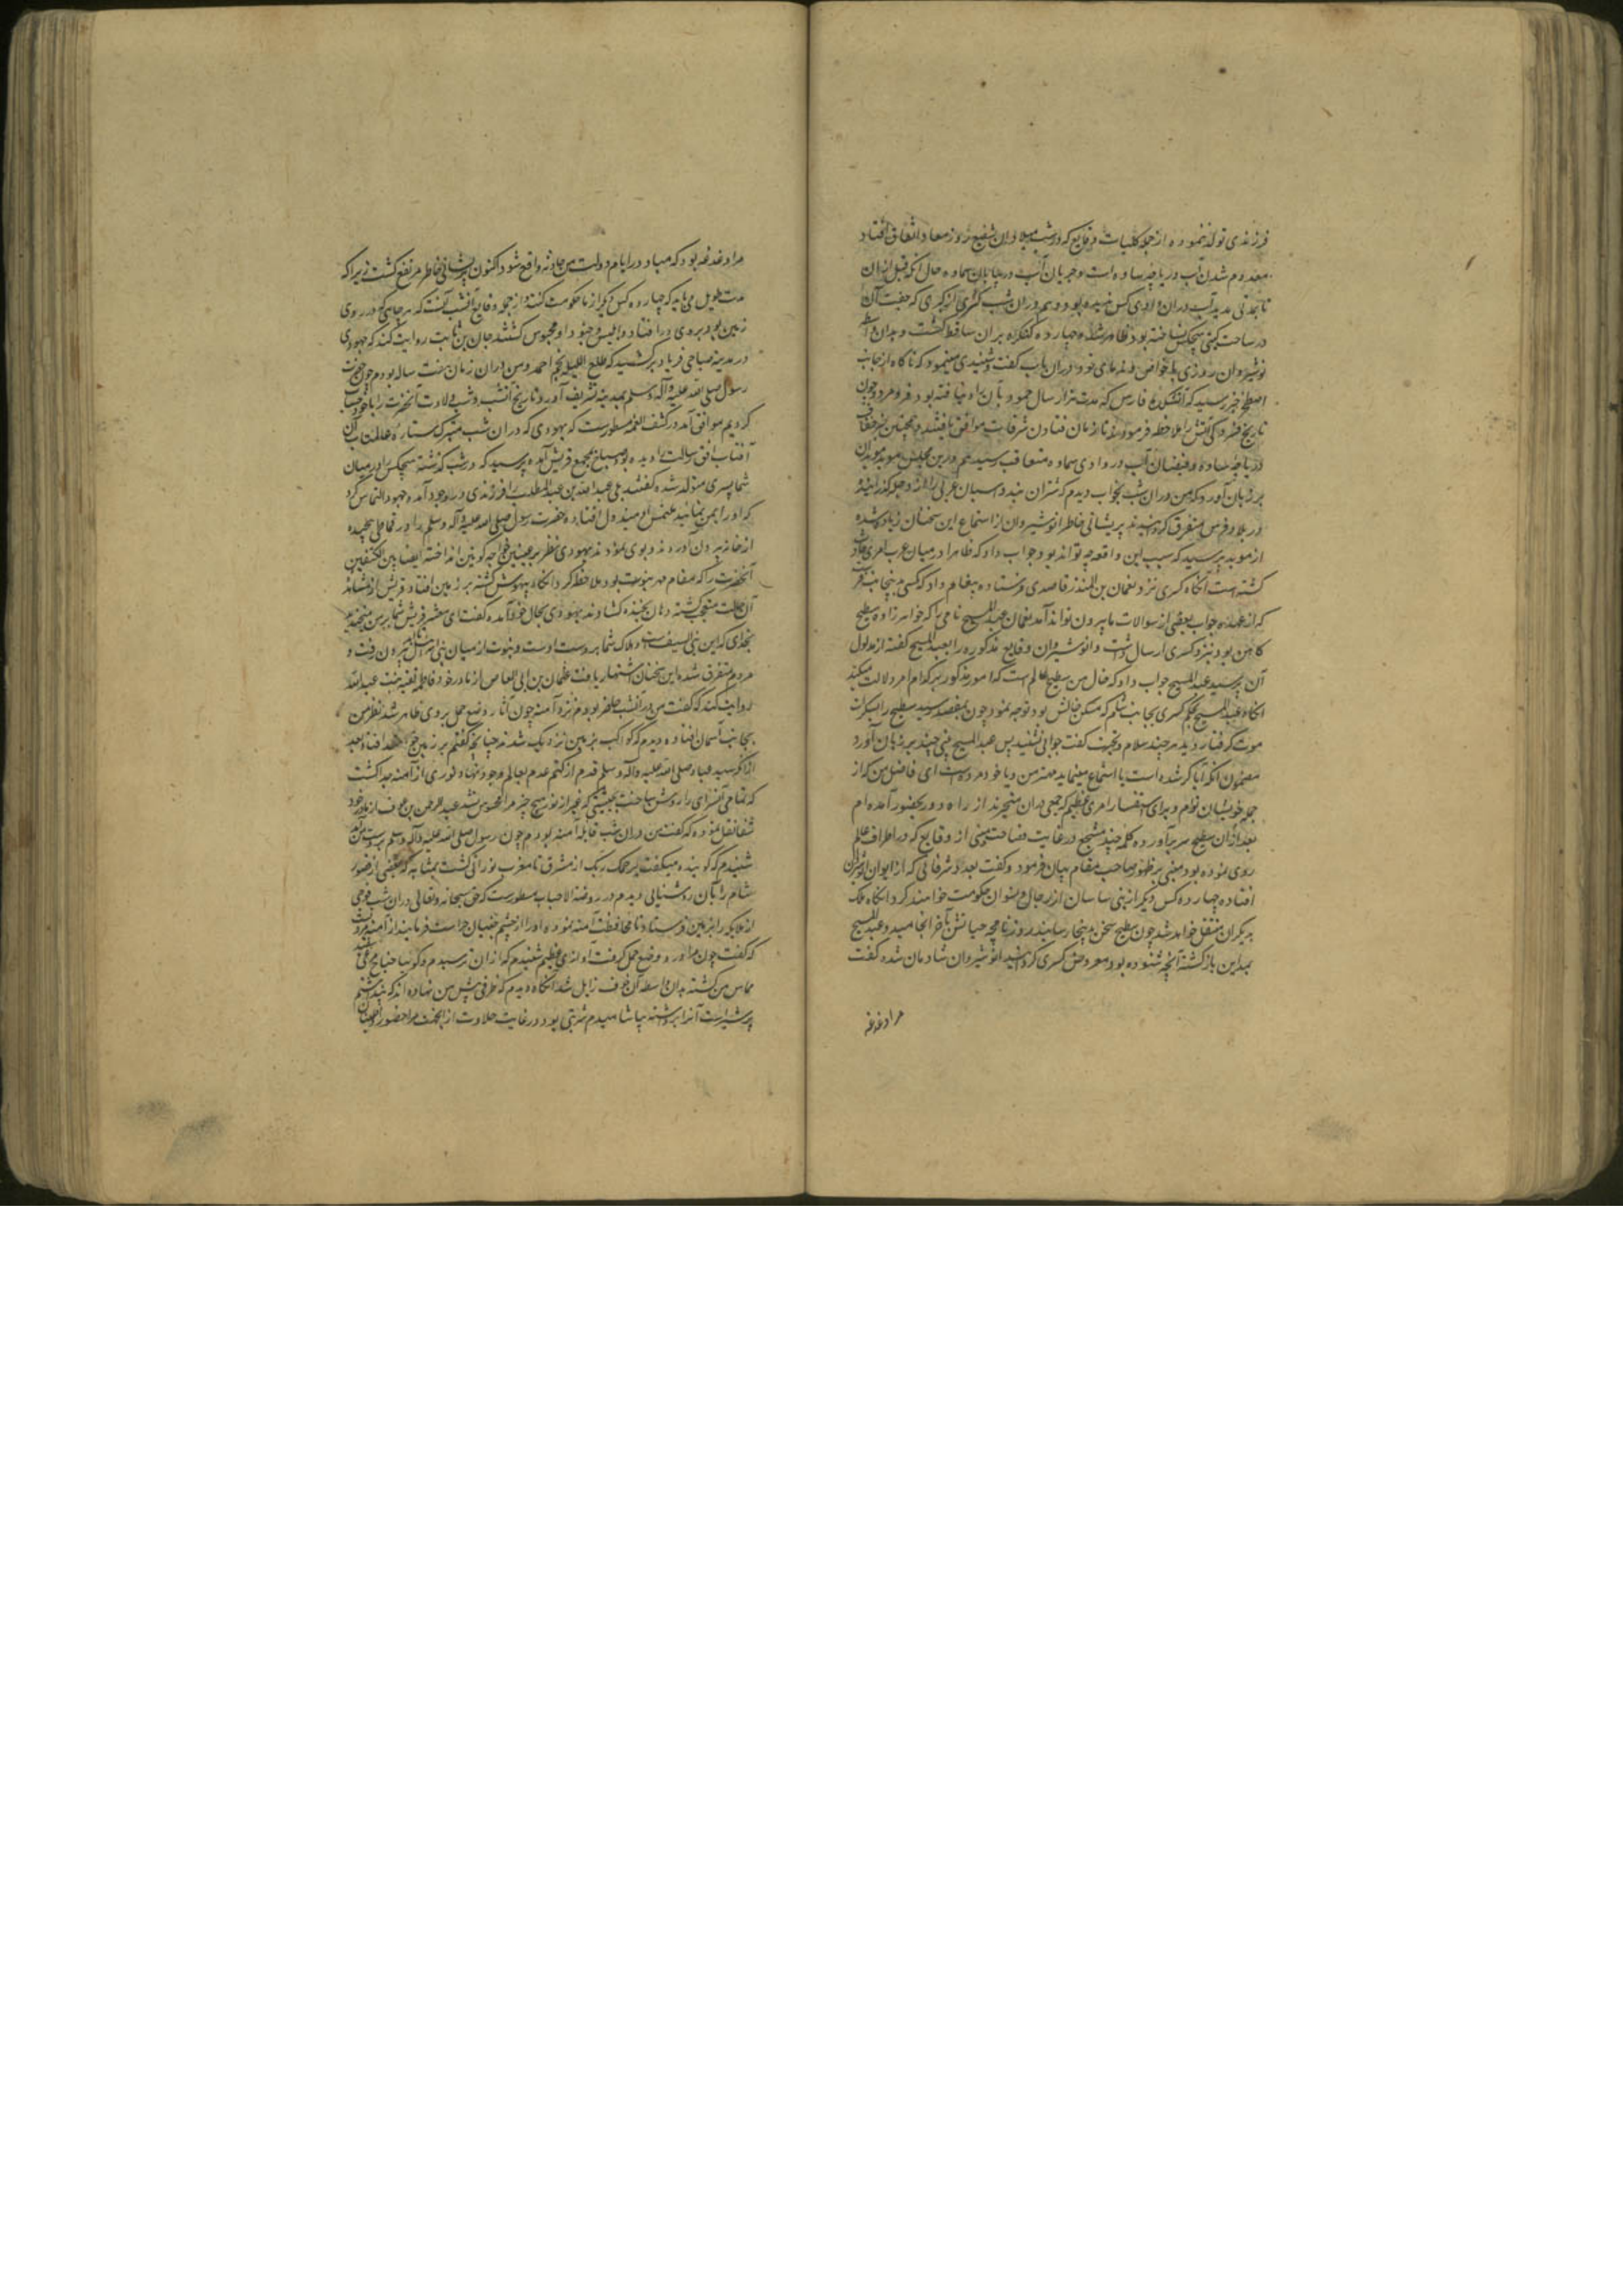 فرزندی تولد ننموده از جمله کلیات وقایع که در شب میلاد ان شفیع روز معاد اتفاق افتاد
معدوم شدن آب دریاچه ساوه است و جریان آب در بیابان سماوه حال آنکه قبل از ان
تا مدتی مدید آب دران وادی کس ندیده بود دویم دران شب کسری از کبری که جفت آن
در ساحت گیتی هیچکس نساخته بود ظاهر شد و چهارده کنکره بر ان ساقط کشت و بدان واسطه
نوشیروان روزی با خواص دران باب گفت و شنیدی مینمود که ناکاه از جانب
اصطخر خبر رسید که آتشکده فارس که مدت هزار سال خمود بآن راه نیافته بود فرو مرد و چون
تاریخ را ملاحظه فرمودند با زمان افتادن شرفات موافق یافتند و همچنین خبر
دریاچه ساوه و فیضان آب در وادی سماوه متعاقب رسید هم درین مجلس موبد موبدان
بر زبان آورد که من دران شب بخواب دیدم که شتران تند و اسبان عربی را از دجله گذرانیده
در بلاد فرس متفرق کردانیدند پریشانی خاطر انوشیروان از استماع این سخنان زیاده شده
از موبد پرسید که سبب این واقعه چه تواند بود جواب داد که ظاهرا در میان عرب امری حادث
کشته است آنکاه کسری نزد نعمان بن المنذر قاصدی فرستاده پیغام داد که کسی بدینجانب فرست
که از عهده جواب بعضی از سوالات ما بیرون تواند آمد نعمان عبد المسیح نامی را که خواهرزاده سطیح
کاهن بود نزد کسری ارسال داشت و انوشیروان وقایع مذکوره را بعبد المسیح گفته از مدلول
آن پرسید عبد المسیح جواب داد که خال من سطیح عالم است که امور مذکور بر کدام امر دلالت میکند
انکاه عبد المسیح بحکم کسری بجانب شام که مسکن خالش بود توجه نمود چون بمقصد رسید سطیح را بسکرات
موت گرفتار دید هر چند سلام و تحیت گفت جوابی نشنید پس عبد المسیح بیتی چند بر زبان آورد
مضمون آنکه آیا کر شده است یا استماع مینماید مهتر من و یا خود مرده است ای فاضل من که از
جمله خویشان توام و برای استفسار امری عظیم که جمعی بدان متحیرند از راه دور بحضور آمده ام
بعد از ان سطیح سر برآورده کلمه چند مسجع در غایت فصاحت مبنی از وقایع که در اطراف عالم
روی نموده بود مبنی بر ظهور صاحب مقام بیان فرمود و گفت بعدد شرفاتی که از ایوان انوشیروان
افتاده چهارده کس دیگر از بنی ساسان از رجال و نسوان حکومت خواهند کرد و انکاه ملک
بدیگران منتقل خواهد شد چون سطیح سخن بدینجا رسانید روزنامچه حیاتش بآخر انجامید و عبد المسیح
بمداین بازگشته آنچه شنوده بود معروض کسری گردانید انوشیروان شادمان شده گفت
مرا دغدغه
مرا دغدغه بود که مبادا در ایام دولت من حادثه واقع شود اکنون پریشانی خاطر مرتفع کشت زیرا که
مدت طویل می باید که چهارده کس دیگر از ما حکومت کنند و از جمله وقایع آنشب آنست که هر جا بتی که در روی
زمین بود بروی در افتاد و ابلیس و جنود او محبوس کشتند حسان بن ثابت روایت کند که جهودی
در مدینه صباحی فریاد برکشید که طلع اللیله نجم احمد و من دران زمان هفت ساله بودم چون حضرت
رسول صلی الله علیه و آله وسلم بمدینه تشریف آورد تاریخ آنشب و شب ولادت آنحضرت را با خود حساب
کردیم موافق آمد در کشف الغمه مسطورست که یهودی که دران شب متبرک ستاره عالمتاب آن
آفتاب افق رسالت را دیده بود صباح بمجمع قریش آمده پرسید که در شب گذشته هیچکس را در میان
شما پسری متولد شده گفتند بلی عبد الله بن عبد المطلب را فرزندی در وجود آمده جهود التماس کرد
که او را بمن نمایید ملتمس او مبذول افتاده حضرت رسول صلی الله علیه و آله وسلم را در قماطی پیچیده
از خانه بیرون آوردند و بوی نمودند یهودی نظر بر
آنحضرت را که مقام مهر نبوت بود ملاحظه کرد انکاه بیهوش کشته بر زمین افتاد قریش از مشاهده
آن حالت متعجب کشته دهان بخنده کشادند یهودی بحال خود آمده گفت ای معشر قریش شما بر من میخندید
بخدای که این نبی السیف است و هلاک شما بر دست اوست و نبوت از میان بنی اسرائیل بیرون رفت و
مردم متفرق شده این سخنان اشتهار یافت عثمان بن ابی العاص از مادر خود فاطمه ثقفیه بنت عبد الله
روایت کند که گفت من در آنشب حاضر بودم نزد آمنه چون آثار وضع حمل بروی ظاهر شد نظر من
بجانب آسمان افتاده دیدم که کواکب بزمین نزدیک شدند چنانچه گفتم بر زمین خواهند افتاد بعد
از انکه سید عباد صلی الله علیه و آله وسلم قدم از کتم عدم بعالم وجود نهاد نوری از آمنه جدا کشت
که تمامی آنسرای را روشن ساخت بحیثیتی که غیر از نور هیچ چیز مرا محسوس نشد عبد الرحمن بن عوف از مادر خود
شفا نقل نموده که گفت من دران شب قابله آمنه بودم چون رسول صلی الله علیه و آله وسلم بر دست من آمد
شنیدم که گوینده میگفت یرحمک ربک از مشرق تا مغرب نورانی کشت بمثابه که بعضی از قصور
شام را بآن روشنایی دیدم در روضه الاحباب مسطورست که حق سبحانه و تعالی دران شب فوجی
از ملایکه را بزمین فرستاد تا محافظت آمنه نموده او را از چشم جنیان حراست فرمایند از آمنه مرویست
که گفت چون مرا درد وضع حمل گرفت آوازی عظیم شنیدم که از ان ترسیدم و گوییا جناح مرغی سفید
مماس من کشته بدان واسطه آن خوف زایل شد آنکاه دیدم که ظرفی پیش من نهاده اند که پنداشتم
پر شیر است آنرا برداشته بیاشامیدم شربتی بود در غایت حلاوت از انجهت مرا حضور و اطمینان